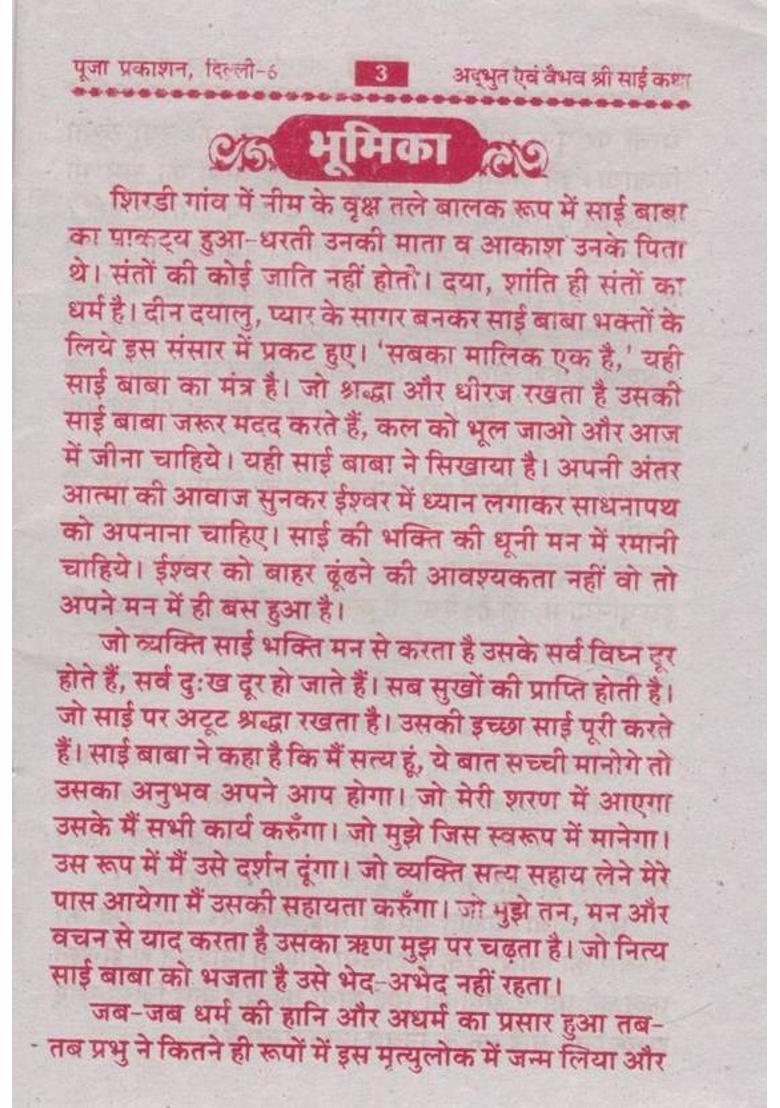 पूजा प्रकाशन, दिल्ली-6 3 अद्‌भुत एवं वैभव श्री साई कथा
भूमिका
शिरडी गांव में नीम के वृक्ष तले बालक रूप में साई बाबा
का प्राकट्य हुआ-धरती उनकी माता व आकाश उनके पिता
थे। संतों की कोई जाति नहीं होती। दया, शांति ही संतों का
धर्म है। दीन दयालु, प्यार के सागर बनकर साई बाबा भक्तों के
लिये इस संसार में प्रकट हुए। 'सबका मालिक एक है,' यही
साई बाबा का मंत्र है। जो श्रद्धा और धीरज रखता है उसकी
साई बाबा जरूर मदद करते हैं, कल को भूल जाओ और आज
में जीना चाहिये। यही साई बाबा ने सिखाया है। अपनी अंतर
आत्मा की आवाज सुनकर ईश्वर में ध्यान लगाकर साधनापथ
को अपनाना चाहिए। साई की भक्ति की धूनी मन में रमानी
चाहिये। ईश्वर को बाहर ढूंढने की आवश्यकता नहीं वो तो
अपने मन में ही बस हुआ है।
जो व्यक्ति साई भक्ति मन से करता है उसके सर्व विघ्न दूर
होते हैं, सर्व दुःख दूर हो जाते हैं। सब सुखों की प्राप्ति होती है।
जो साई पर अटूट श्रद्धा रखता है। उसकी इच्छा साई पूरी करते
हैं। साई बाबा ने कहा है कि मैं सत्य हूं, ये बात सच्ची मानोगे तो
उसका अनुभव अपने आप होगा। जो मेरी शरण में आएगा
उसके मैं सभी कार्य करुँगा। जो मुझे जिस स्वरूप में मानेगा।
उस रूप में मैं उसे दर्शन दूंगा। जो व्यक्ति सत्य सहाय लेने मेरे
पास आयेगा मैं उसकी सहायता करुँगा। जो मुझे तन, मन और
वचन से याद करता है उसका ऋण मुझ पर चढ़ता है। जो नित्य
साई बाबा को भजता है उसे भेद-अभेद नहीं रहता।
जब-जब धर्म की हानि और अधर्म का प्रसार हुआ तब-
तब प्रभु ने कितने ही रूपों में इस मृत्युलोक में जन्म लिया और